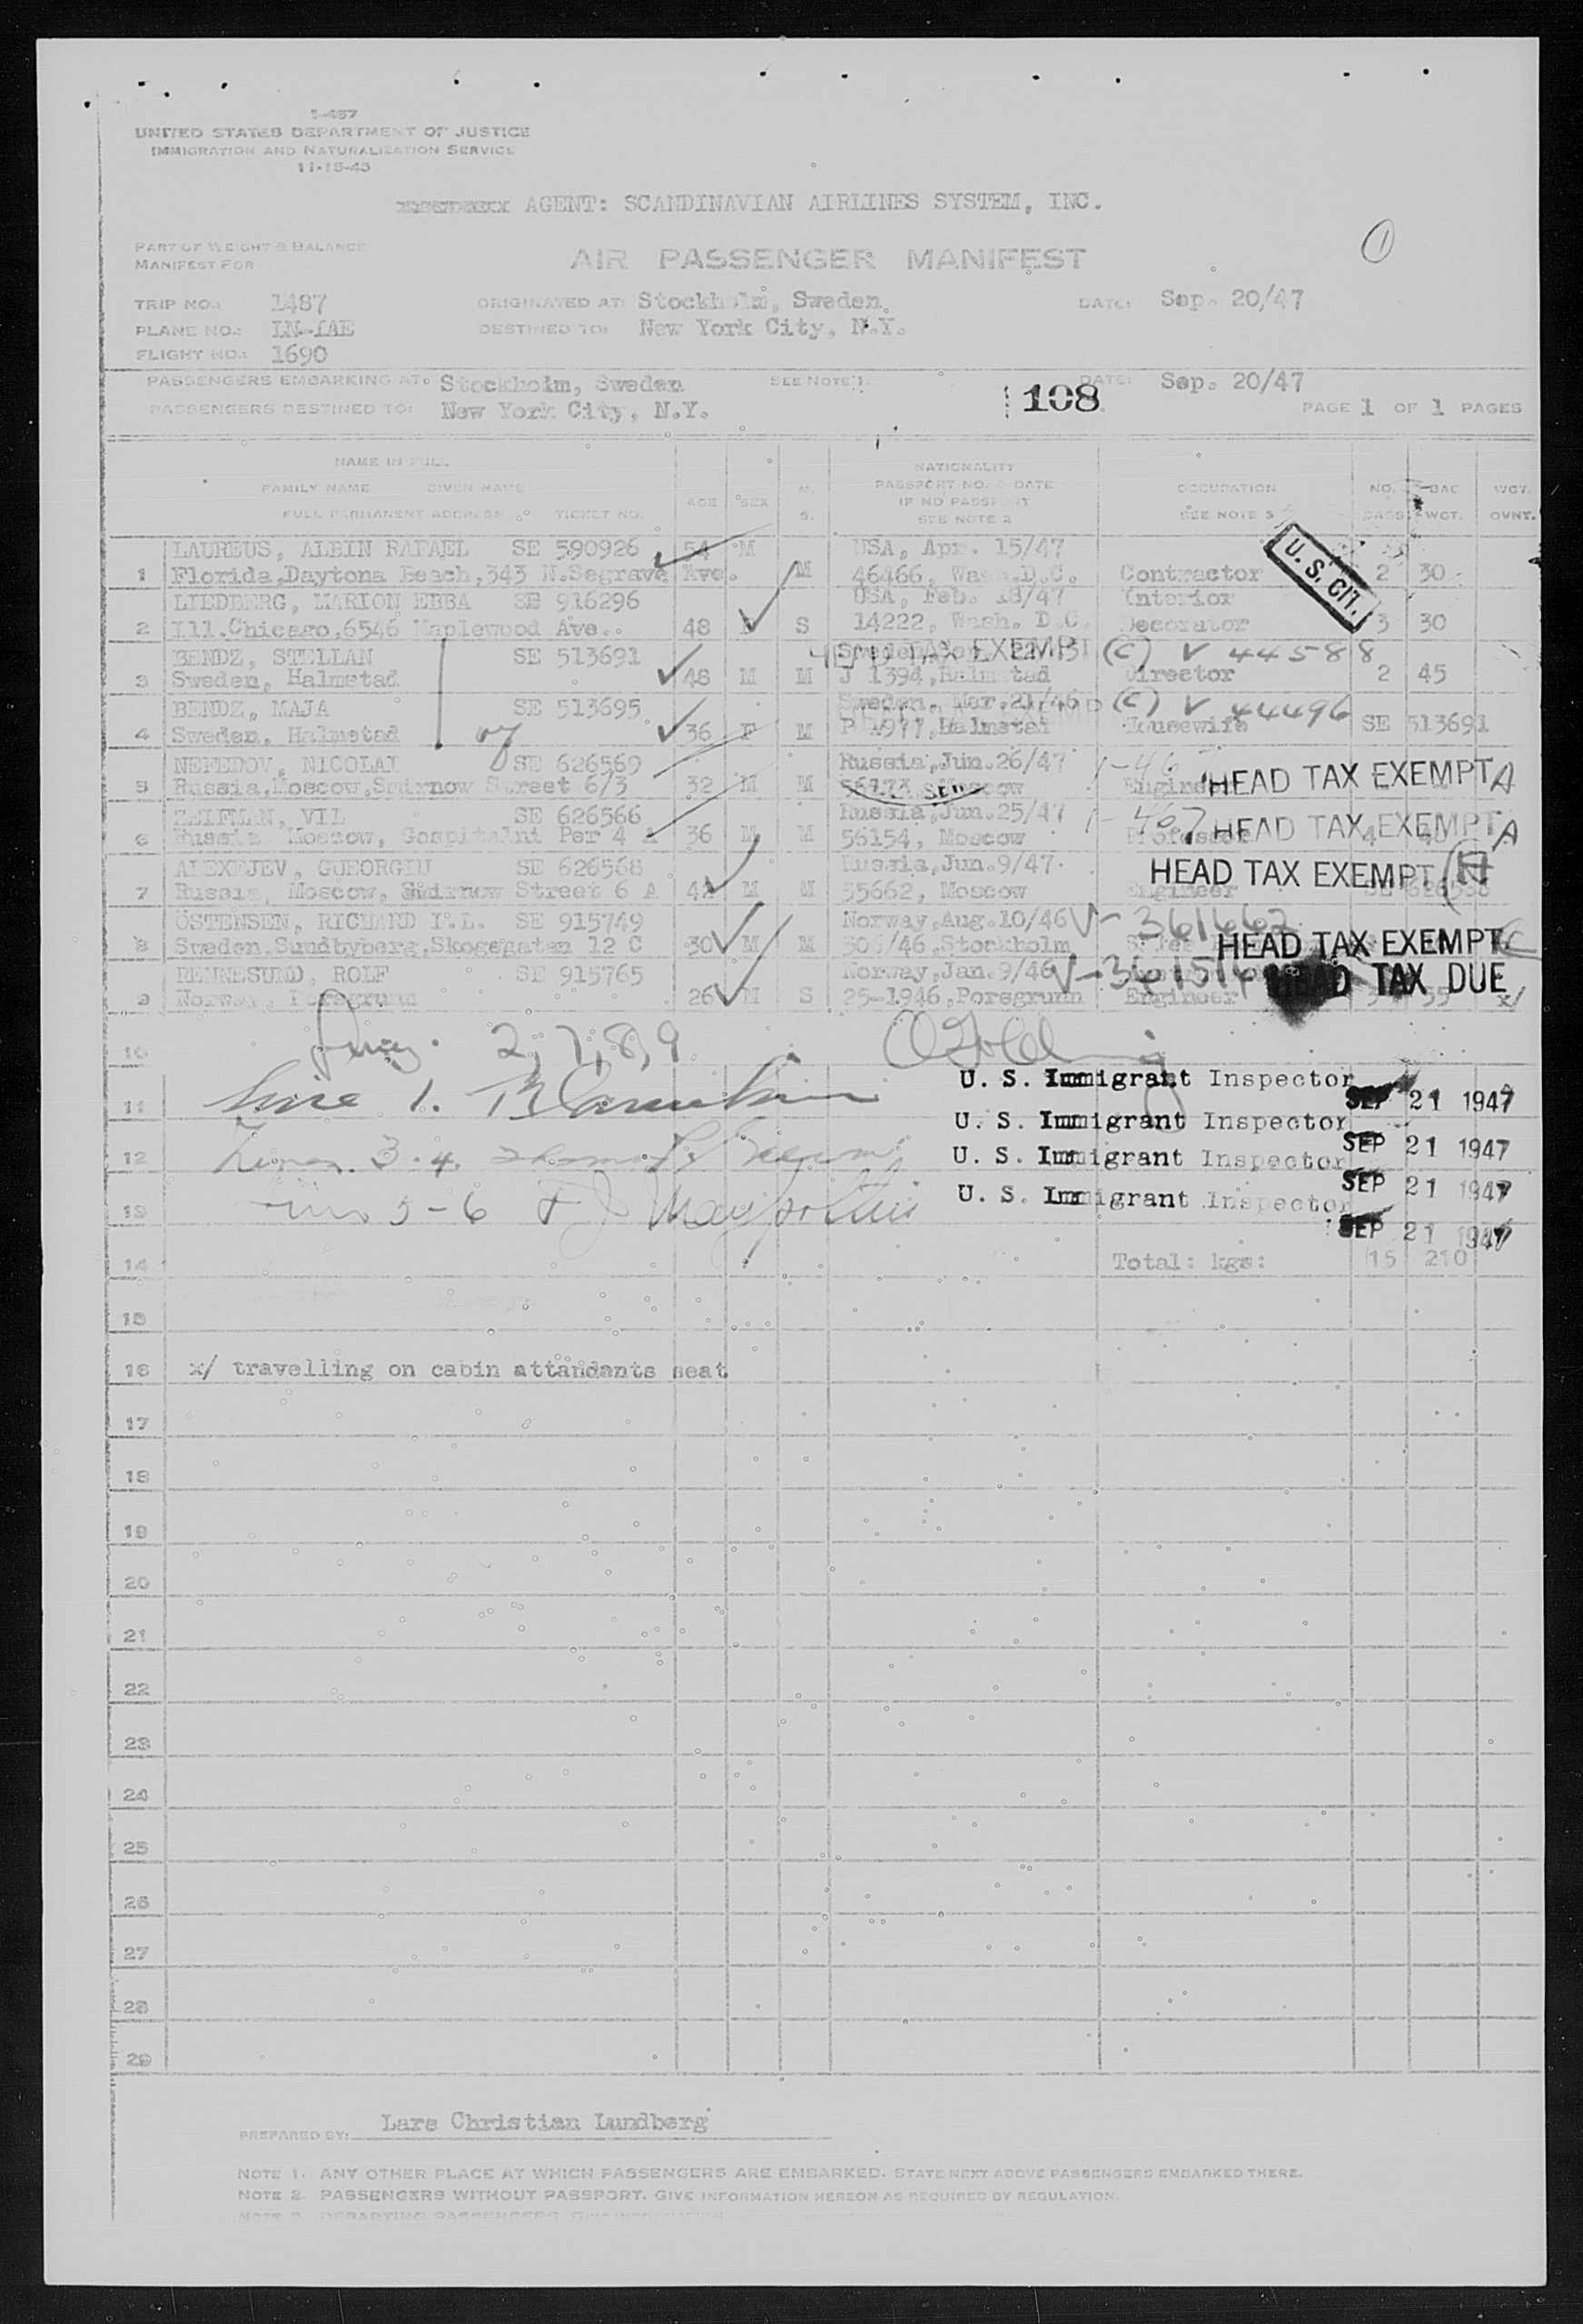 I-487
UNITED STATES DEPARTMENT OF JUSTICE
IMMIGRATION AND NATURALIZATION SERVICE
11-15-45
AGENT: SCANDINAVIAN AIRLINES SYSTEM, INC.
1
PART OF WEIGHT & BALANCE
MANIFEST FOR
AIR PASSENGER MANIFEST
TRIP NO.: 1487 ORIGINATED AT: Stockholm, Sweden. DATE: Sep. 20/47
PLANE NO.: LN-IAE DESTINED TO: New York City, N.Y.
FLIGHT NO.: 1690
PASSENGERS EMBARKING AT: Stockholm, Sweden SEE NOTE 1. DATE: Sep. 20/47
PASSENGERS DESTINED TO: New York City, N.Y. 108 PAGE 1 OF 1 PAGES
NAME IN FULL
FAMILY NAME GIVEN NAME
FULL PERMANENT ADDRESS TICKET NO.
AGE SEX M. S.
NATIONALITY
PASSPORT NO. & DATE
IF NO PASSPORT
SEE NOTE 2
OCCUPATION
SEE NOTE 3
NO. BAGS BAG WGT. WGT. OVNT.
LAUREUS, ALBIN RAFAEL SE 590926 54 M USA, Apr. 15/47 U. S. CIT.
1 Florida,Daytona Beach,343 N.Segrave Ave. M 46466, Wash.D.C. Contractor 2 30
LIEDBERG, MARION EBBA SE 916296 USA, Feb. 18/47 Interior
2 Ill.Chicago,6546 Maplewood Ave.. 48 F S 14222, Wash. D.C. Decorator 3 30
BENDZ, STELLAN SE 513691 TAX EXEMPT (C) V 44588
3 Sweden, Halmstad 48 M M J 1394,Halmstad Director 2 45
BENDZ, MAJA SE 513695 Sweden, Mar.21/46 (C) V 44496
4 Sweden, Halmstad 36 F M P 1977,Halmstad Housewife SE 513691
NEFEDOV, NICOLAI SE 626569 Russia,Jun.26/47
5 Russia,Moscow,Smirnow Street 6/3 32 M M Moscow Engineer HEAD TAX EXEMPT A
ZEIFMAN, VIL SE 626566 Russia,Jun.25/47
6 Russia Moscow, Gospitalni Per 4 A 36 M M 56154, Moscow Professor HEAD TAX EXEMPT A
ALEXEJEV, GUEORGIU SE 626568 Russia,Jun.9/47 HEAD TAX EXEMPT
7 Russia, Moscow, Smirnow Street 6 A 42 M M 55662, Moscow Engineer
ÖSTENSEN, RICHARD SE 915749 Norway,Aug.10/46 V-361662
8 Sweden.Sundbyberg,Skogsgatan 12 C 30 M M /46,Stockholm HEAD TAX EXEMPT C
RENNESUND, ROLF SE 915765 Norway,Jan.9/46 HEAD TAX DUE
9 Norway, Porsgrunn 26 M S 25-1946,Porsgrunn Engineer 55 x/
10 2, 7, 8, 9
U. S. Immigrant Inspector SEP 21 1947
11 line 1.
U. S. Immigrant Inspector SEP 21 1947
12 3.4.
U. S. Immigrant Inspector SEP 21 1947
13 5-6
U. S. Immigrant Inspector SEP 21 1947
14 Total: kgs: 15 210
15
16 x/ travelling on cabin attandants seat
17
18
19
20
21
22
23
24
25
26
27
28
29
PREPARED BY: Lars Christian Lundberg
NOTE 1. ANY OTHER PLACE AT WHICH PASSENGERS ARE EMBARKED. STATE NEXT ABOVE PASSENGERS EMBARKED THERE.
NOTE 2. PASSENGERS WITHOUT PASSPORT. GIVE INFORMATION HEREON AS REQUIRED BY REGULATION.
NOTE 3. DEPARTING PASSENGERS